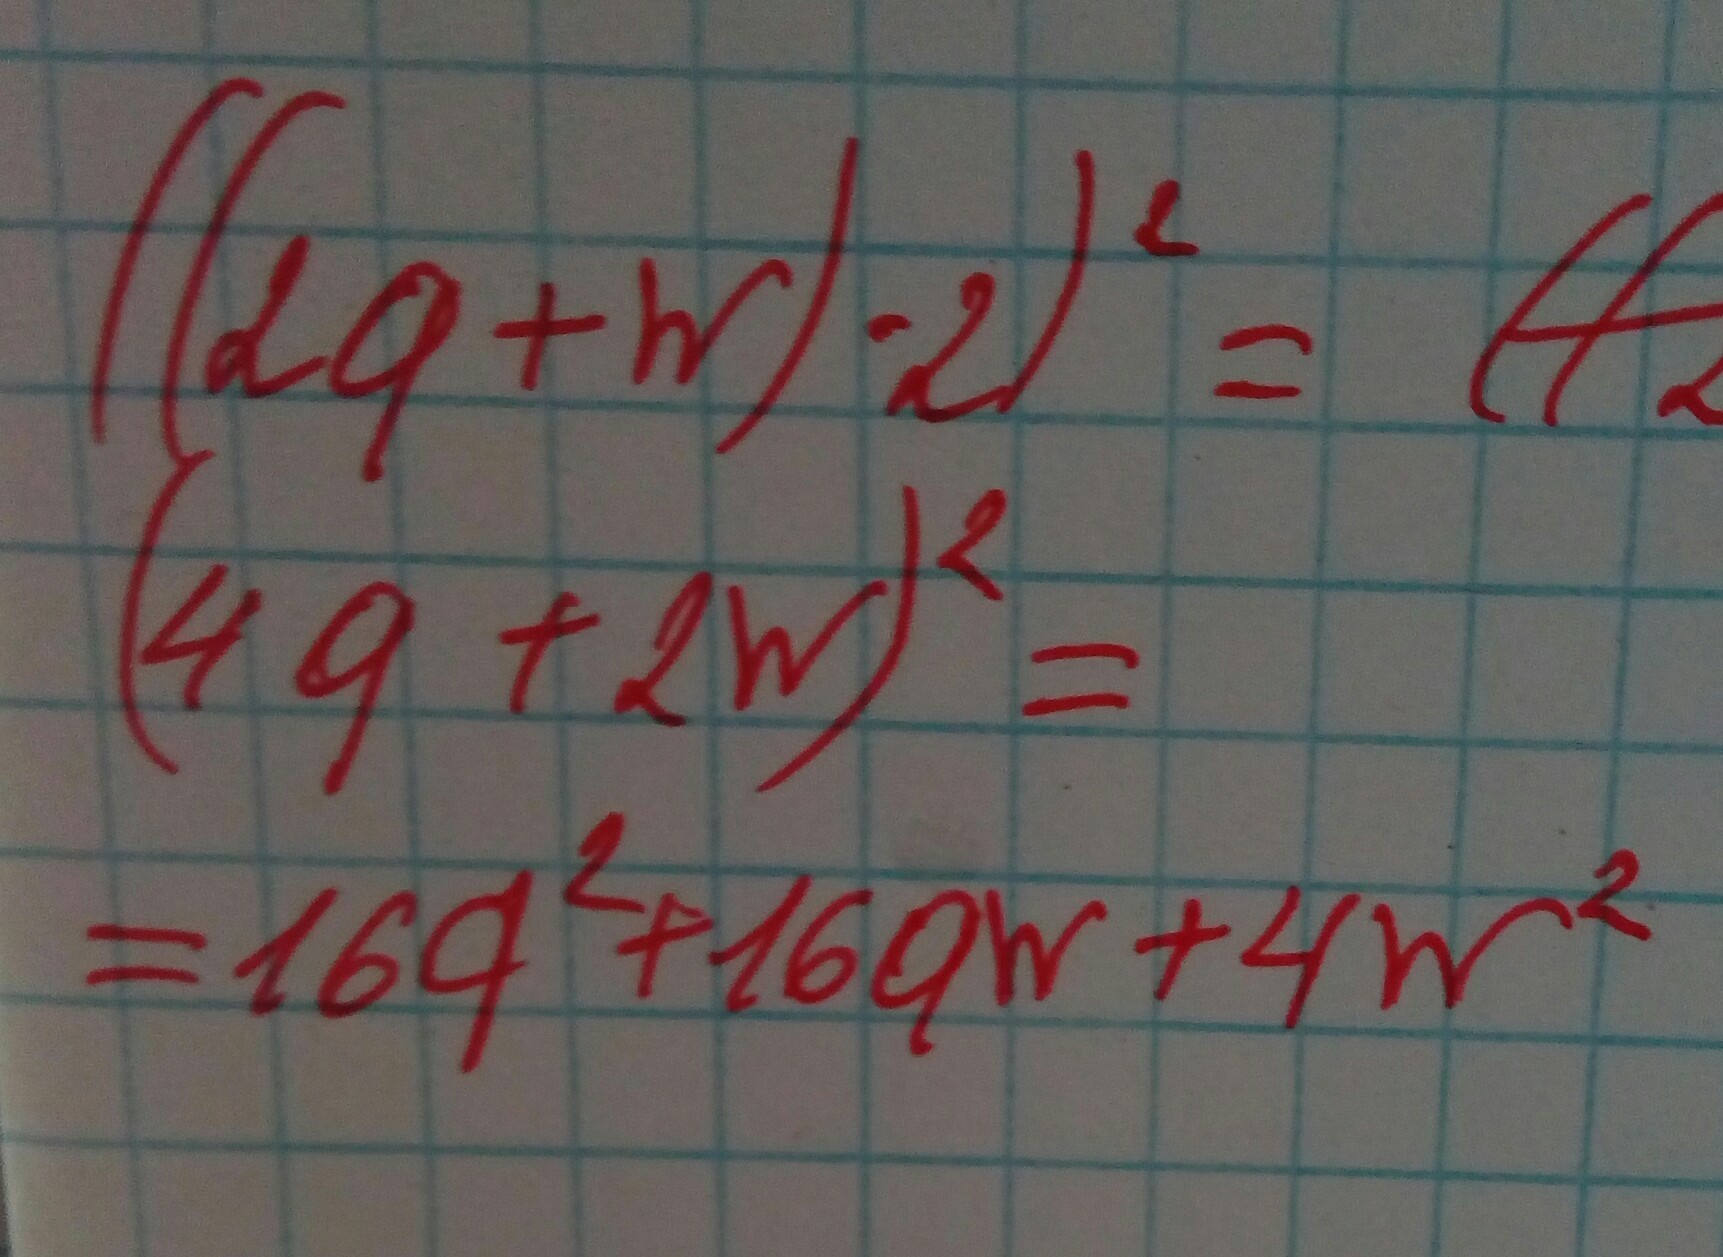 ((2q+w)·2)² =
(4q+2w)² =
=16q²+16qw+4w²